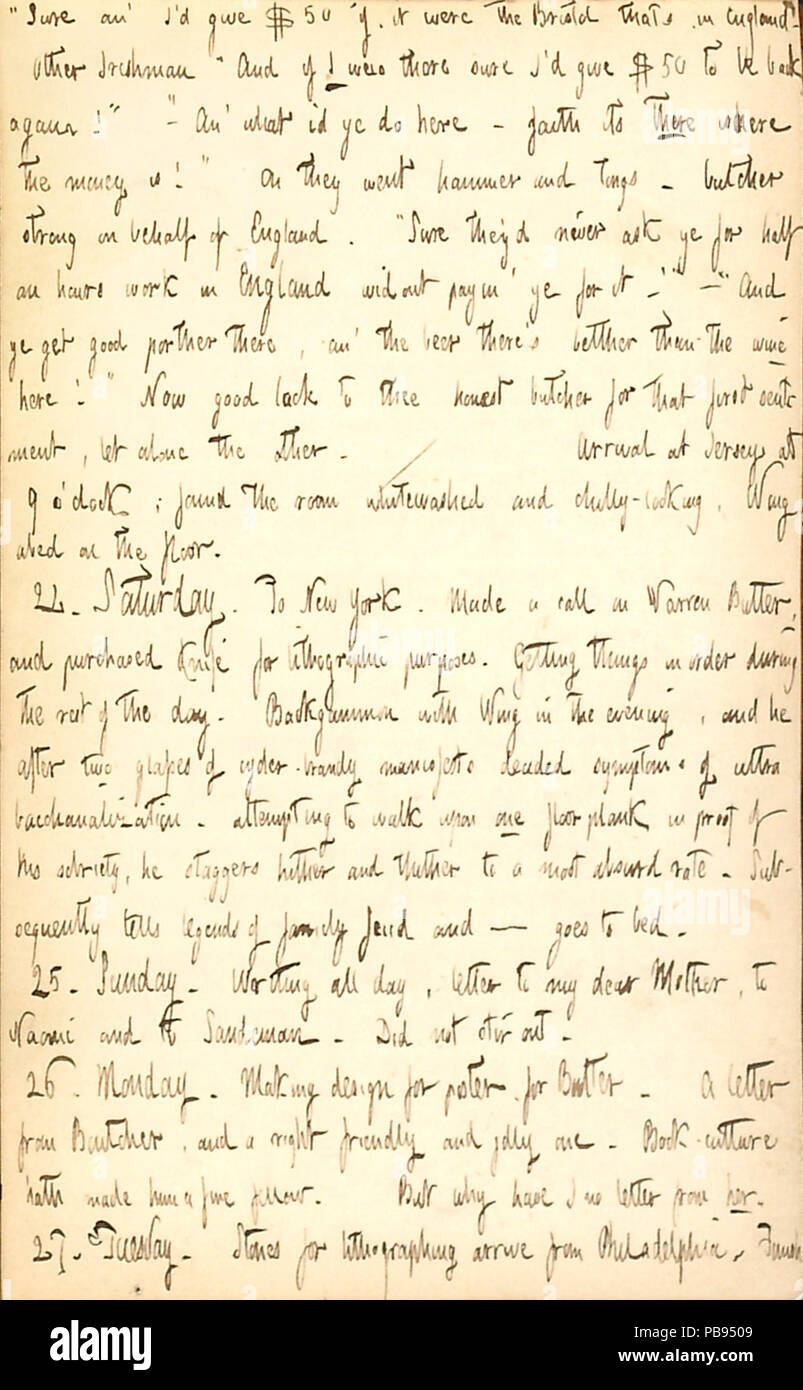 "Sure an' I'd give $50 if it were the Bristol that's in England"-
other Irishman "And if I were there sure I'd give $50 to be back
again!" "- An' what id ye do here - faith its there where
the money is!" On they went hammer and tongs - butcher
strong on behalf of England. "Sure they'd never ask ye for half
an hours work in England widout payin' ye for it -!" -"And
ye get good porther there, an' the beer there's betther than the wine
here!" Now good luck to thee honest butcher for that first senti
ment, let alone the other. Arrival at Jersey at
9 o'clock; found the room whitewashed and chilly-looking. Wing
abed on the floor.
24. Saturday. To New York. Made a call on Warren Butler,
and purchased Knife for lithographic purposes. Getting things in order during
the rest of the day. Backgammon with Wing in the evening, and he
after two glasses of cyder-brandy manifests decided symptoms of ultra
bacchanalization - attempting to walk upon one floor plank in proof of
his sobriety, he staggers hither and thither to a most absurd rate - Sub-
sequently tells legends of family feud and — goes to bed.
25. Sunday. Writing all day, letter to my dear Mother, to
Naomi and to Sandeman. Did not stir out.
26. Monday. Making design for poster for Butler. A letter
from Boutcher, and a right friendly and jolly one. Book-culture
hath made him a fine fellow. But why have I no letter from her.
27. Tuesday. Stones for lithographing arrive from Philadelphia. Finish
alamy
alamy
Image ID: PB9509
www.alamy.com